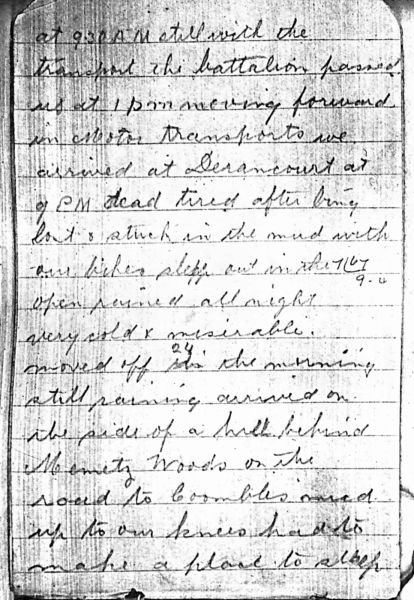 at 930 AM still with the
transport the battalion passed
us at 1 pm moving forward
in Motor transports we
arrived at Derancourt at
9 PM dead tired after bing
lost & stuck in the mud with
our bikes slepp out in the
open rained all night
very cold & misirable.
moved off in the morning
still raining arrived on
the side of a hill behind
Memetz Woods on the
road to Coombles mud
up to our knees had to
make a place to sleep